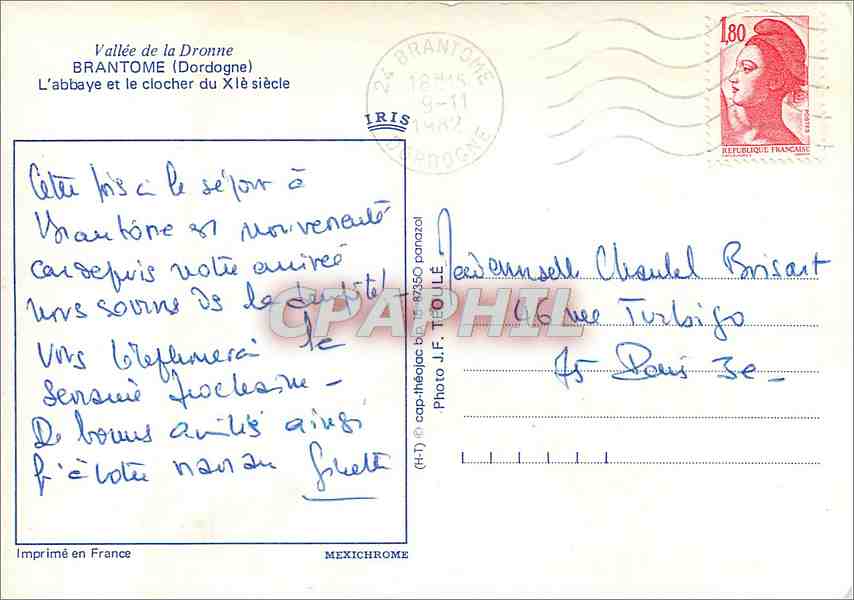 Vallée de la Dronne
BRANTOME (Dordogne)
L'abbaye et le clocher du XIè siècle
24 BRANTOME
18H15
9-11
1982
DORDOGNE
IRIS
1,80
POSTES
REPUBLIQUE FRANÇAISE
Cette fois ci le séjour à
Brantôme est mouvementé
car depuis notre arrivée
nous sommes
Vous téléphonerai la
semaine prochaine -
De bonnes amitiés ainsi
qu'à votre maman Ginette
CPAPHIL
(H-T) © cap-théojac b.p. 15 87350 panazol
Photo J.F. TEOULÉ
Mademoiselle Chantal Brisart
46 rue Turbigo
75 Paris 3e -
Imprimé en France
MEXICHROME